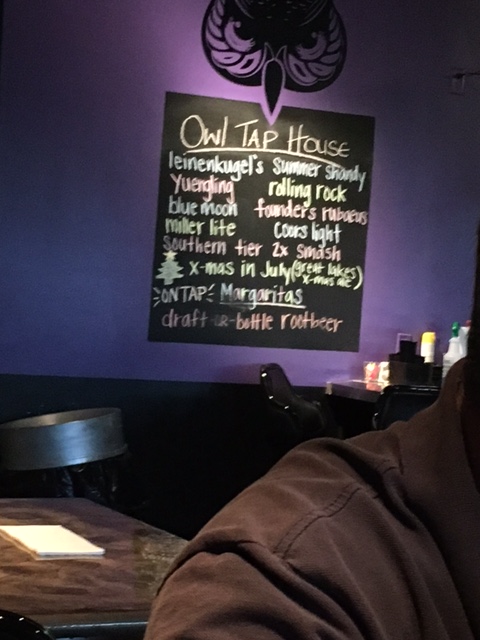 Owl Tap House
leinenkugel's Summer Shandy
Yuengling rolling rock
blue moon founder's rubaeus
miller lite Coors light
Southern tier 2x Smash
x-mas in July (great lakes x-mas ale)
ON TAP Margaritas
draft -or- bottle rootbeer